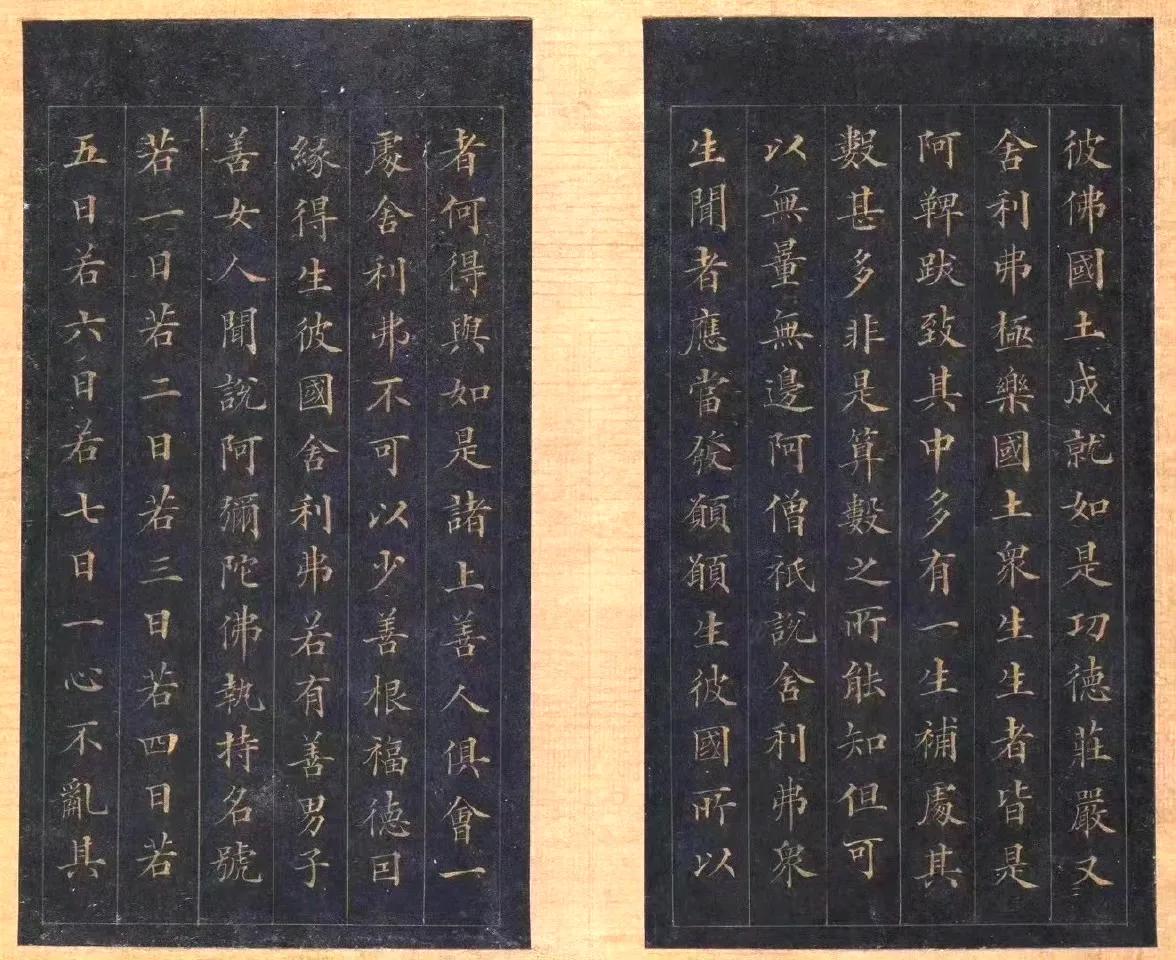 彼佛國土成就如是功德莊嚴又
舍利弗極樂國土衆生生者皆是
阿鞞跋致其中多有一生補處其
數甚多非是算數之所能知但可
以無量無邊阿僧祇說舍利弗衆
生聞者應當發願願生彼國所以
者何得與如是諸上善人俱會一
處舍利弗不可以少善根福德因
緣得生彼國舍利弗若有善男子
善女人聞說阿彌陀佛執持名號
若一日若二日若三日若四日若
五日若六日若七日一心不亂其